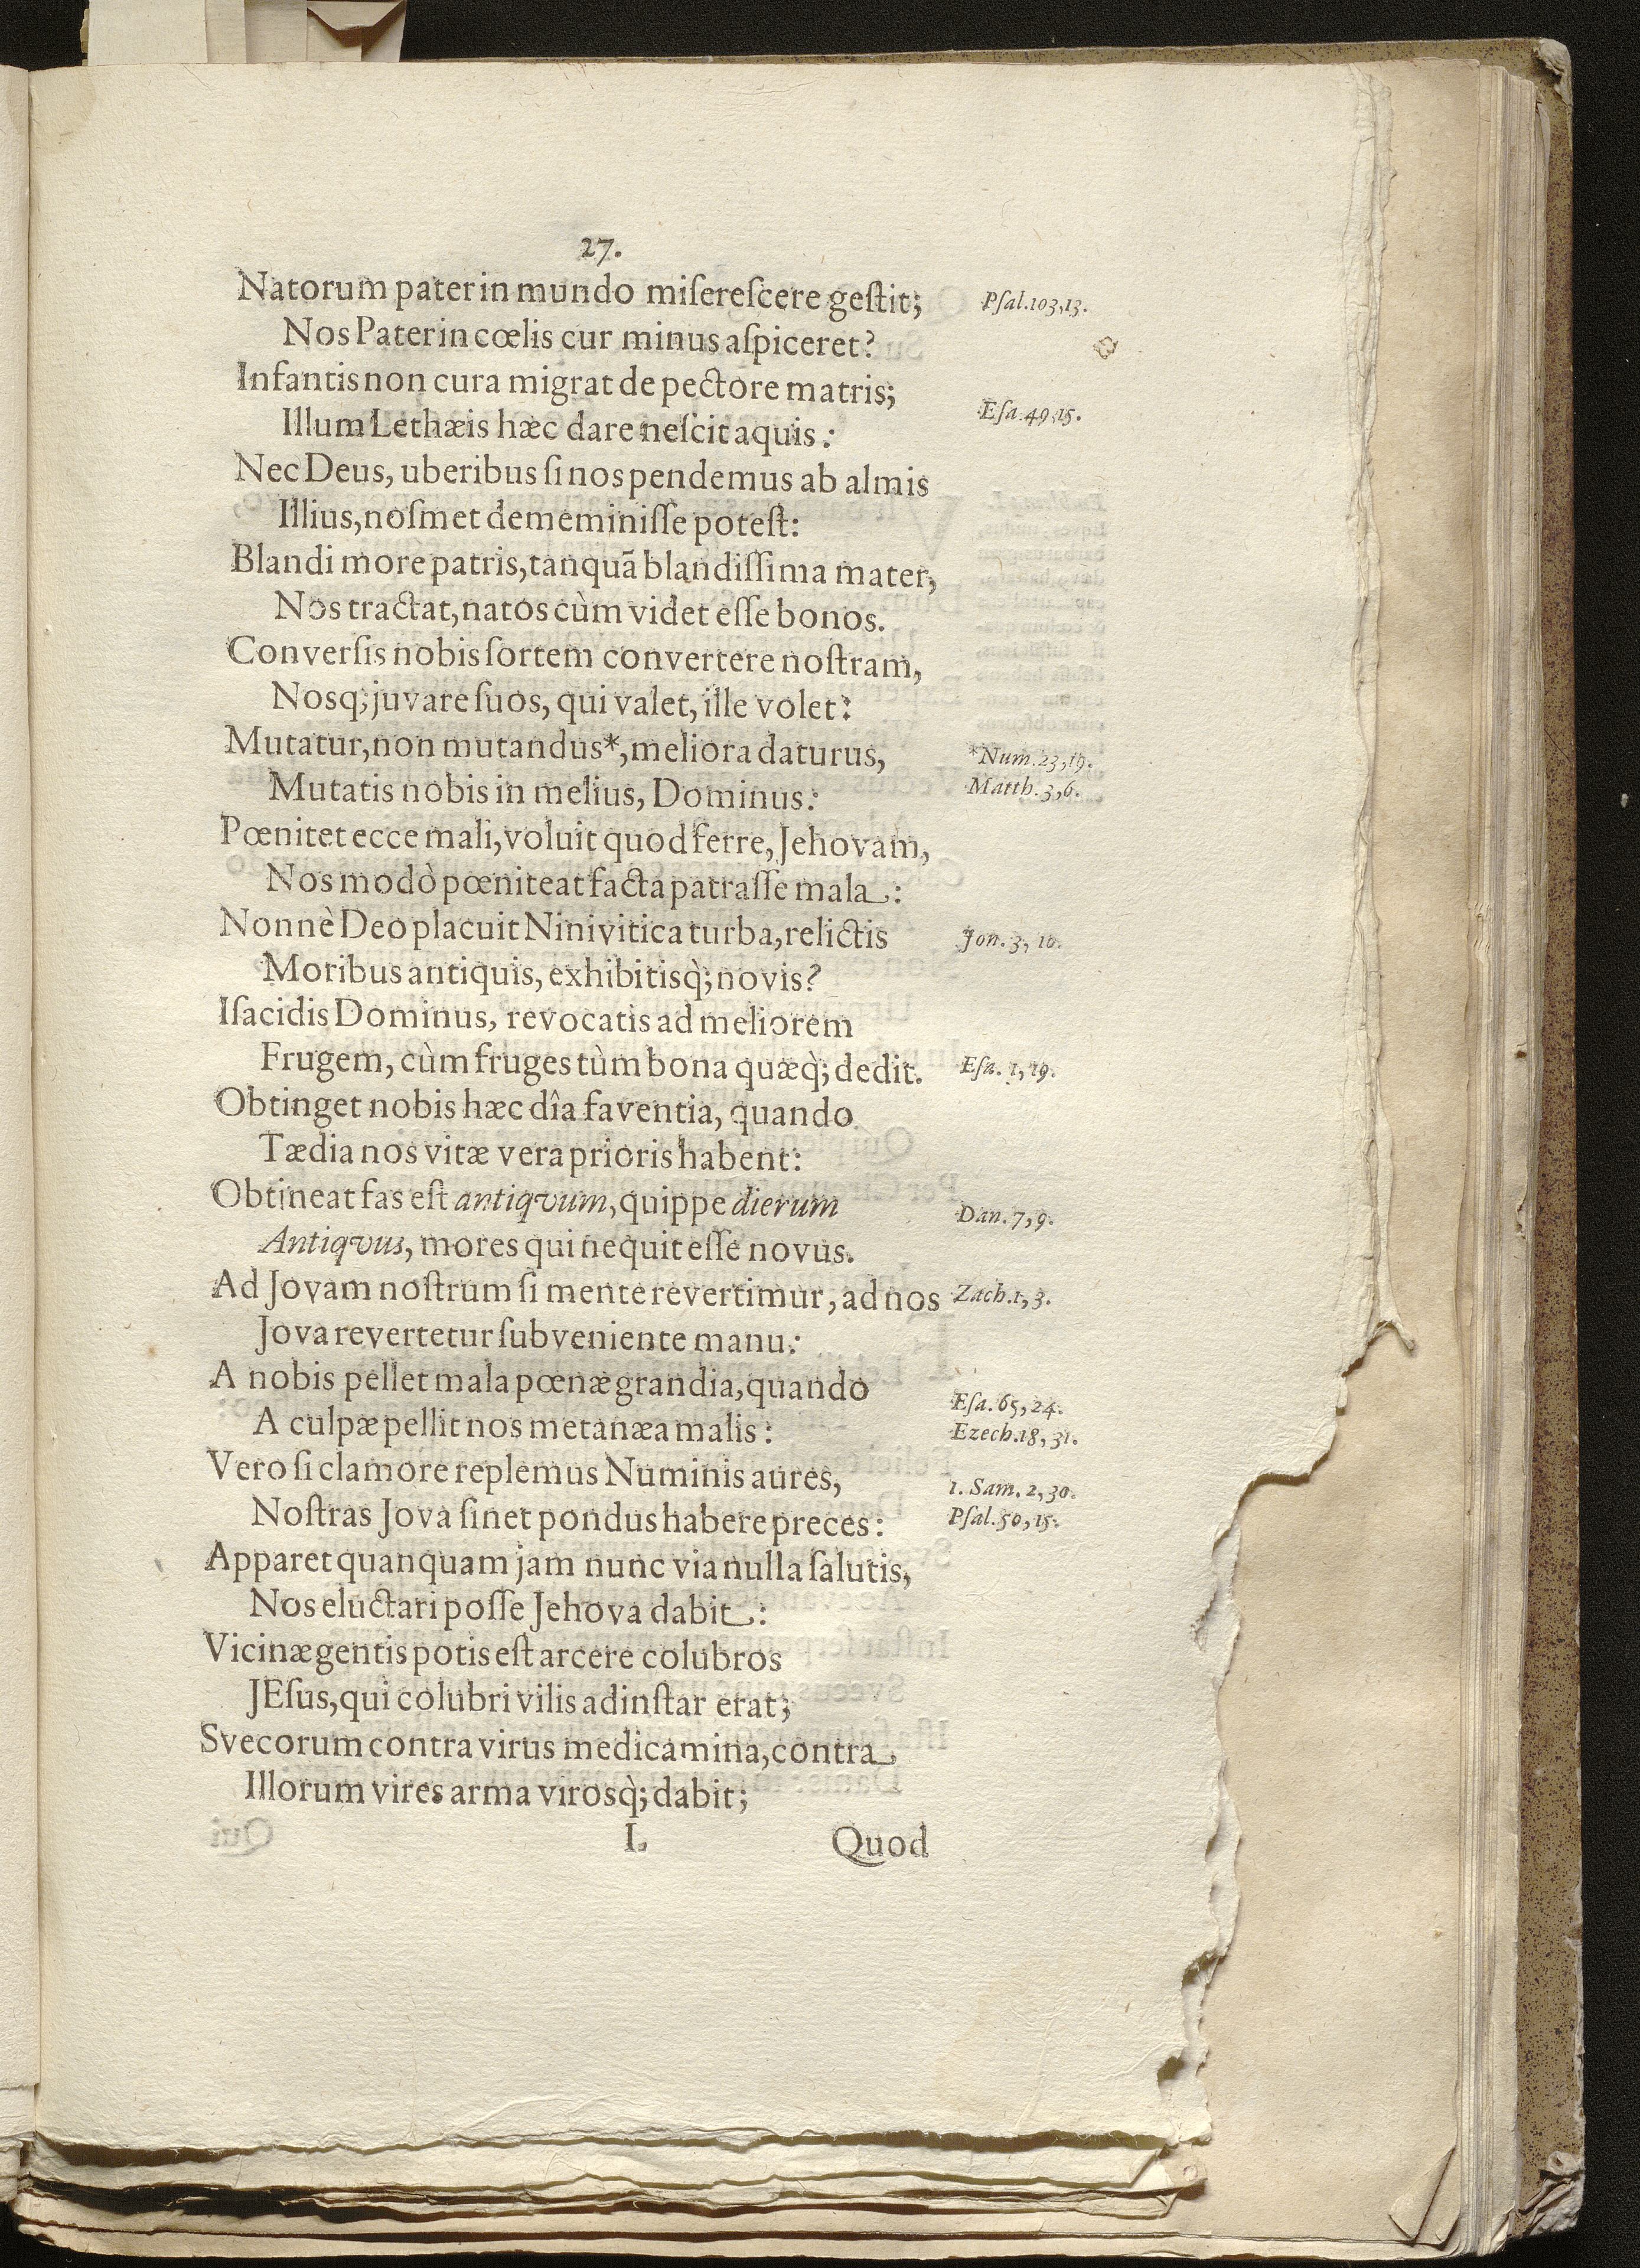 27.
Natorum pater in mundo miſereſcere geſtit; Pſal.103,13.
Nos Pater in cœlis cur minus aſpiceret?
Infantis non cura migrat de pectore matris;
Illum Lethæis hæc dare neſcit aquis: Eſa.49,15.
Nec Deus, uberibus ſi nos pendemus ab almis
Illius, noſmet dememiniſſe poteſt:
Blandi more patris, tanquã blandiſſima mater,
Nos tractat, natos cùm videt eſſe bonos.
Converſis nobis ſortem convertere noſtram,
Nosq; juvare ſuos, qui valet, ille volet:
Mutatur, non mutandus*, meliora daturus, *Num.23,19.
Mutatis nobis in melius, Dominus: Matth.3,6.
Pœnitet ecce mali, voluit quod ferre, Jehovam,
Nos modò pœniteat facta patraſſe mala:
Nonnè Deo placuit Ninivitica turba, relictis Jon.3,10.
Moribus antiquis, exhibitisq̀; novis?
Iſacidis Dominus, revocatis ad meliorem
Frugem, cùm fruges tùm bona quæq̀; dedit. Eſa.1,19.
Obtinget nobis hæc dîa faventia, quando
Tædia nos vitæ vera prioris habent:
Obtineat fas eſt antiqvum, quippe dierum Dan.7,9.
Antiqvus, mores qui nequit eſſe novus.
Ad Jovam noſtrum ſi mente revertimur, ad nos Zach.1,3.
Jova revertetur ſubveniente manu:
A nobis pellet mala pœnæ grandia, quando Eſa.65,24.
A culpæ pellit nos metanæa malis: Ezech.18,31.
Vero ſi clamore replemus Numinis aures, 1.Sam.2,30.
Noſtras Jova ſinet pondus habere preces: Pſal.50,15.
Apparet quanquam jam nunc via nulla ſalutis,
Nos eluctari poſſe Jehova dabit:
Vicinæ gentis potis eſt arcere colubros
JEſus, qui colubri vilis adinſtar erat;
Svecorum contra virus medicamina, contra
Illorum vires arma virosq̀; dabit;
I. Quod